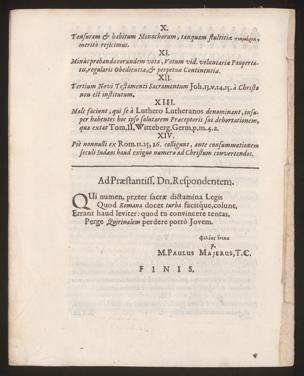 X.
Tonsuram & habitum Monachorum, tanquam stultitiæ
meritò rejicimus.
XI.
Minùs probanda eorundem vota, Votum vid. voluntariæ Pauperta-
tis, regularis Obedientiæ, & perpetuæ Continentiæ.
XII.
Tertium Novi Testamenti Sacramentum Joh. 13. v. 14. 15. à Christo
non est institutum.
XIII.
Malè faciunt, qui se à Luthero Lutheranos denominant, insu-
per habentes hoc ipso salutarem Præceptoris sui dehortationem,
quæ extat Tom. II. Witteberg. Germ. p. m. 4. a.
XIV.
Piè nonnulli ex Rom. 11. 25, 26. colligunt, ante consummationem
seculi Judæos haud exiguo numero ad Christum convertendos.
Ad Præstantiss. Dn. Respondentem.
QUi numen, præter sacræ dictamina Legis
Quod Romana docet turba facitque, colunt,
Errant haud leviter: quod tu convincere tentas.
Perge Quirinalem perdere porrò Jovem.
φιλίας ἕνεκα
p.
M. PAULUS MAJERUS, T. C.
FINIS.